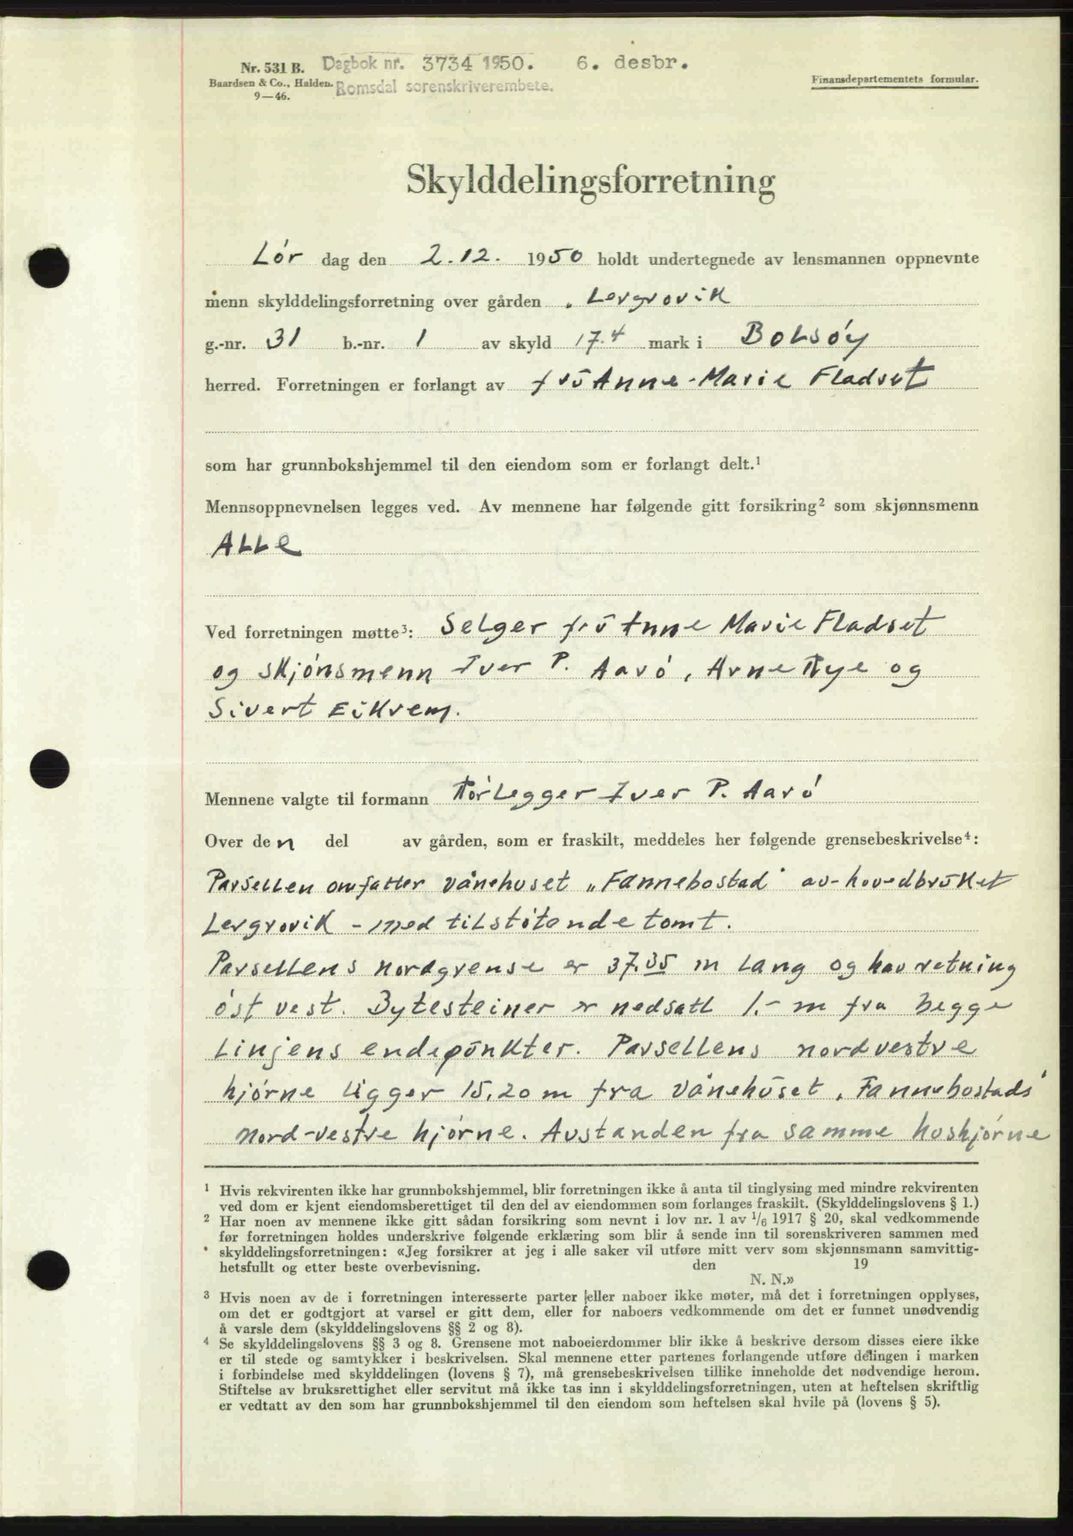 Nr. 531 B. Dagbok nr. 3734 1950. 6. desbr.
Baardsen & Co., Halden. Romsdal sorenskriverembete.
9—46.
Finansdepartementets formular.
Skylddelingsforretning
Lór dag den 2.12. 1950 holdt undertegnede av lensmannen oppnevnte
menn skylddelingsforretning over gården Lergrovik
g.-nr. 31 b.-nr. 1 av skyld 17.4 mark i Bolsøy
herred. Forretningen er forlangt av frŭ Anne-Marie Fladset
som har grunnbokshjemmel til den eiendom som er forlangt delt.¹
Mennsoppnevnelsen legges ved. Av mennene har følgende gitt forsikring² som skjønnsmenn
Alle
Ved forretningen møtte³: Selger frŭ Anne Marie Fladset
og skjónsmenn Iver P. Aaró, Arne Rye og
Sivert Eikrem.
Mennene valgte til formann Rórlegger Iver P. Aaró
Over den del av gården, som er fraskilt, meddeles her følgende grensebeskrivelse⁴:
Parsellen omfatter vånehuset „Fannebostad" av hovedbrŭket
Lergrovik - med tilstótende tomt.
Parsellens nordgrense er 37.35 m lang og har retning
óst vest. Bytesteiner er nedsatt 1.- m fra begge
linjens endepŭnkter. Parsellens nordvestre
hjórne ligger 15,20 m fra vånehŭset „Fannebostads"
nord-vestre hjórne. Avstanden fra samme hushjórne
¹ Hvis rekvirenten ikke har grunnbokshjemmel, blir forretningen ikke å anta til tinglysing med mindre rekvirenten
ved dom er kjent eiendomsberettiget til den del av eiendommen som forlanges fraskilt. (Skylddelingslovens § 1.)
² Har noen av mennene ikke gitt sådan forsikring som nevnt i lov nr. 1 av 1/6 1917 § 20, skal vedkommende
før forretningen holdes underskrive følgende erklæring som blir å sende inn til sorenskriveren sammen med
skylddelingsforretningen: «Jeg forsikrer at jeg i alle saker vil utføre mitt verv som skjønnsmann samvittig-
hetsfullt og etter beste overbevisning. den 19
N. N.»
³ Hvis noen av de i forretningen interesserte parter eller naboer ikke møter, må det i forretningen opplyses,
om det er godtgjort at varsel er gitt dem, eller for naboers vedkommende om det er funnet unødvendig
å varsle dem (skylddelingslovens §§ 2 og 8).
⁴ Se skylddelingslovens §§ 3 og 8. Grensene mot naboeierdommer blir ikke å beskrive dersom disses eiere ikke
er til stede og samtykker i beskrivelsen. Skal mennene etter partenes forlangende utføre delingen i marken
i forbindelse med skylddelingen (lovens § 7), må grensebeskrivelsen tillike inneholde det nødvendige herom.
Stiftelse av bruksrettighet eller servitut må ikke tas inn i skylddelingsforretningen, uten at heftelsen skriftlig
er vedtatt av den som har grunnbokshjemmel til den eiendom som heftelsen skal hvile på (lovens § 5).